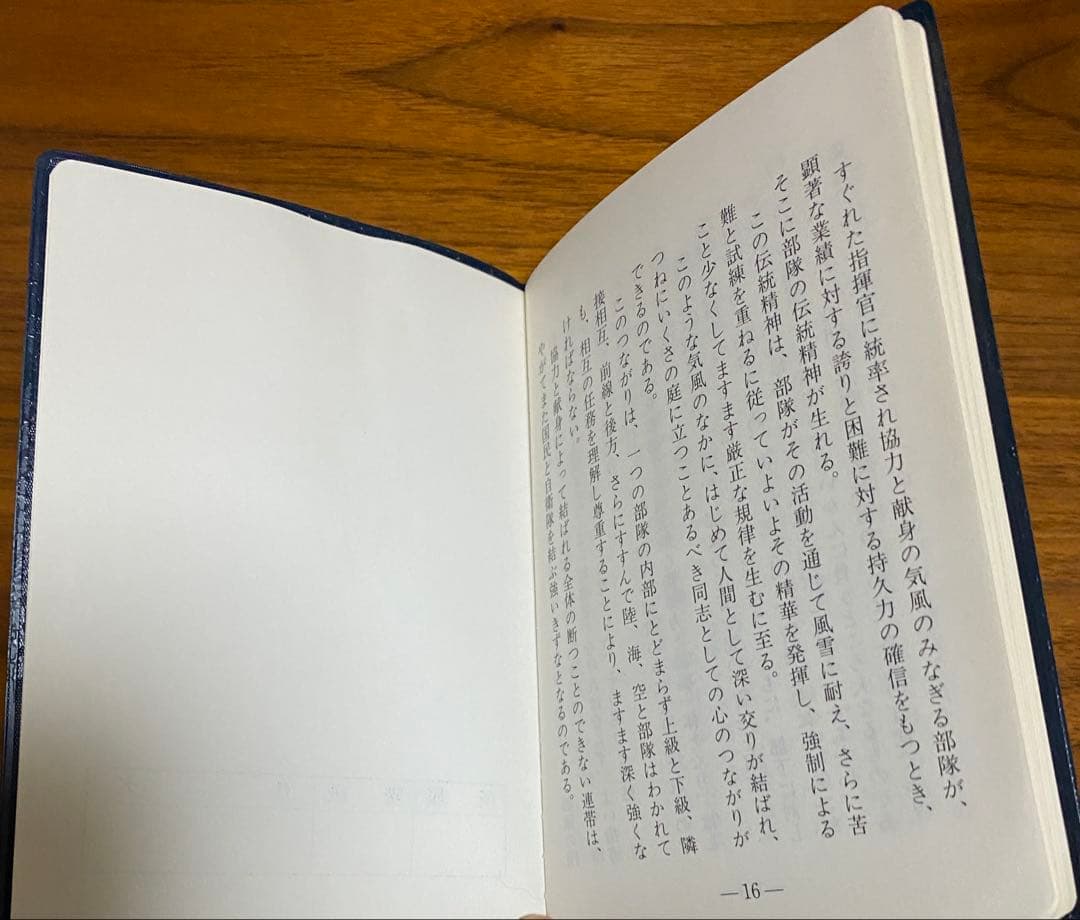 すぐれた指揮官に統率され協力と献身の気風のみなぎる部隊が、
顕著な業績に対する誇りと困難に対する持久力の確信をもつとき、
そこに部隊の伝統精神が生れる。
この伝統精神は、部隊がその活動を通じて風雪に耐え、さらに苦
難と試練を重ねるに従っていよいよその精華を発揮し、強制による
こと少なくしてますます厳正な規律を生むに至る。
このような気風のなかに、はじめて人間として深い交りが結ばれ、
つねにいくさの庭に立つことあるべき同志としての心のつながりが
できるのである。
このつながりは、一つの部隊の内部にとどまらず上級と下級、隣
接相互、前線と後方、さらにすすんで陸、海、空と部隊はわかれて
も、相互の任務を理解し尊重することにより、ますます深く強くな
ければならない。
協力と献身によって結ばれる全体の断つことのできない連帯は、
やがてまた国民と自衛隊を結ぶ強いきずなとなるのである。
—16—